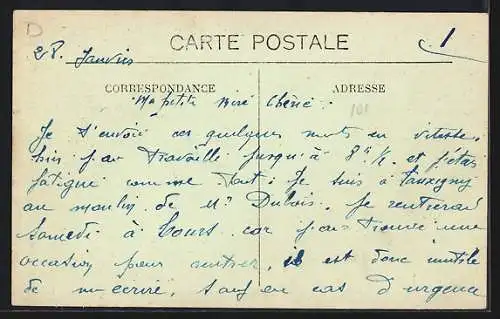 D
CARTE POSTALE
1
28. Janvier
CORRESPONDANCE
ADRESSE
Ma petite Miré Chérie.
101
Je t'envoie ces quelques mots en vitesse,
j'ai travaillé jusqu'à 8h ½ et j'étais
fatigué comme tout. Je suis à
au moulin de Mr Dubois. Je rentrerai
samedi à Tours car j'ai trouvé une
occasion pour rentrer, il est donc inutile
de m'écrire, sauf en cas d'urgence